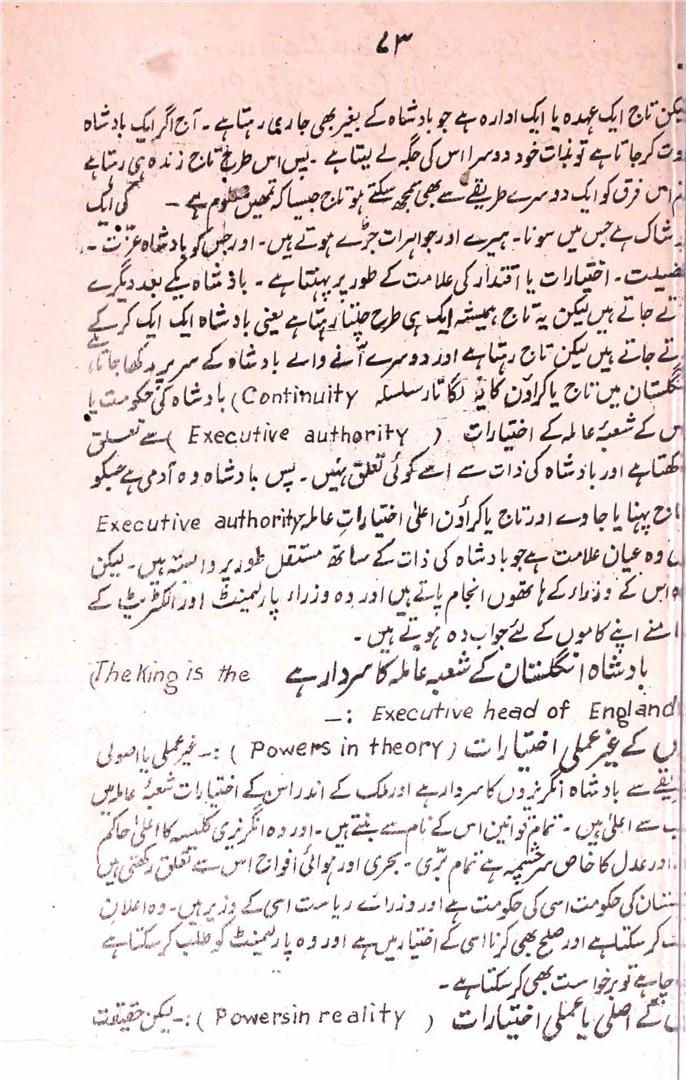 ۷۳
لیکن تاج ایک عہدہ یا ایک ادارہ ہے جو بادشاہ کے بغیر بھی جاری رہتا ہے ۔ آج اگر ایک بادشاہ
فوت کر جاتا ہے تو بذات خود دوسرا اس کی جگہ لے لیتا ہے ۔ پس اس طرح تاج زندہ ہی رہتا ہے
اس فرق کو ایک دوسرے طریقے سے بھی سمجھ سکتے ہو تاج جیسا کہ تمھیں معلوم ہے ۔ کی ایک
پوشاک ہے جس میں سونا ۔ ہیرے اور جواہرات جڑے ہوتے ہیں ۔ اور جس کو بادشاہ عزّت ۔
فضیلت ۔ اختیارات یا اقتدار کی علامت کے طور پر پہنتا ہے ۔ بادشاہ یکے بعد دیگرے
آتے جاتے ہیں لیکن یہ تاج ہمیشہ ایک ہی طرح چلتا رہتا ہے یعنی بادشاہ ایک ایک کر کے
آتے جاتے ہیں لیکن تاج رہتا ہے اور دوسرے آنے والے بادشاہ کے سر پر رکھا جاتا ہے
انگلستان میں تاج یا کراؤن کا یہ لگاتار سلسلہ Continuity) بادشاہ کی حکومت یا
اس کے شعبۂ عاملہ کے اختیارات ( Executive authority ) سے تعلق
رکھتا ہے اور بادشاہ کی ذات سے اسے کوئی تعلق نہیں ۔ پس بادشاہ وہ آدمی ہے جسکو
تاج پہنا یا جاوے اور تاج یا کراؤن اعلیٰ اختیاراتِ عاملہ Executive authority
وہ عیان علامت ہے جو بادشاہ کی ذات کے ساتھ مستقل طور پر وابستہ ہیں ۔ لیکن
اس کے وزراء کے ہاتھوں انجام پاتے ہیں اور وہ وزراء پارلیمنٹ اور الکٹریٹ کے
سامنے اپنے کاموں کے لئے جواب دہ ہوتے ہیں ۔
بادشاہ انگلستان کے شعبہ عاملہ کا سردار ہے (The King is the
Executive head of England :—
کے غیر عملی اختیارات ( Powers in theory ) :۔ غیر عملی یا اصولی
طریقے سے بادشاہ انگریزوں کا سردار ہے اور ملک کے اندر اس کے اختیارات شعبۂ عاملہ میں
سب سے اعلیٰ ہیں ۔ تمام قوانین اس کے نام سے بنتے ہیں ۔ اور وہ انگریزی کلیسہ کا اعلیٰ حاکم
اور عدل کا خاص سرچشمہ ہے تمام برّی ۔ بحری اور ہوائی افواج اس سے تعلق رکھتی ہیں
انگلستان کی حکومت اسی کی حکومت ہے اور وزرائے ریاست اسی کے وزیر ہیں ۔ وہ اعلان
کر سکتا ہے اور صلح بھی کرنا اسی کے اختیار میں ہے اور وہ پارلیمنٹ کو طلب کر سکتا ہے
چاہے تو برخواست بھی کر سکتا ہے ۔
کے اصلی یا عملی اختیارات ( Powersin reality ) :۔ لیکن حقیقت